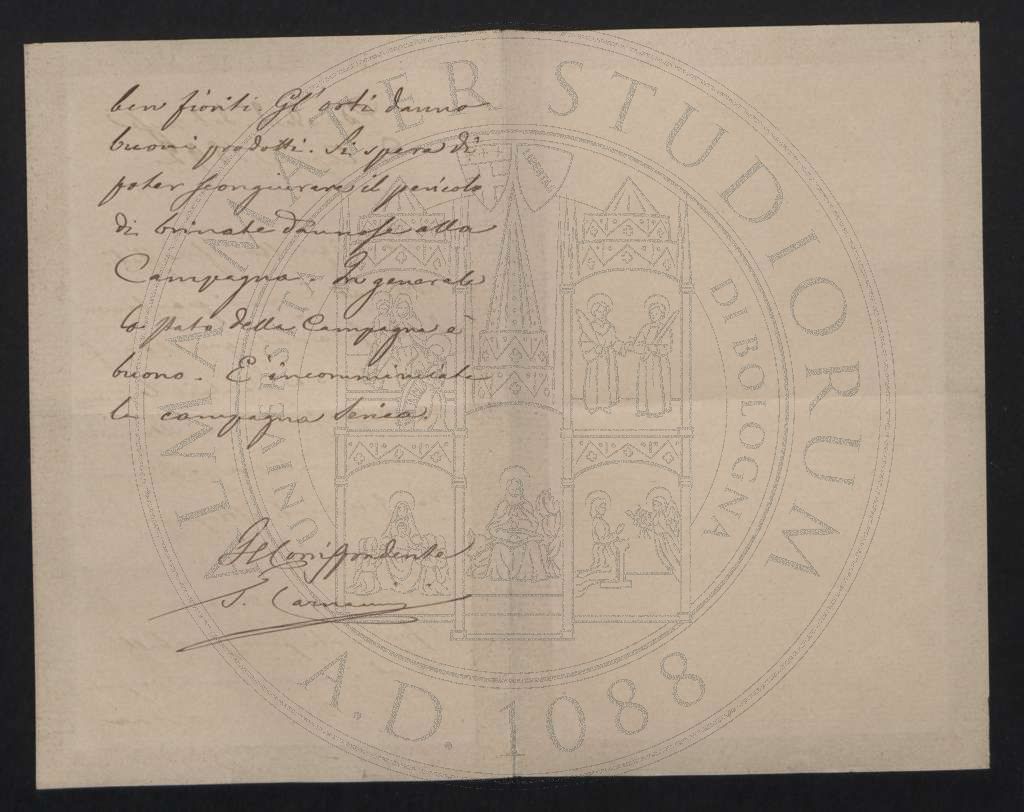 ben fioriti. Gl'orti danno
buoni prodotti. Si spera di
poter scongiurare il pericolo
di brinate dannose alla
Campagna. In generale
lo stato della Campagna è
buono. È incomminciata
la campagna serica.
Il Corrispondente
ALMA MATER STUDIORUM
UNIVERSITÀ DI BOLOGNA
LIBERTAS
A.D. 1088